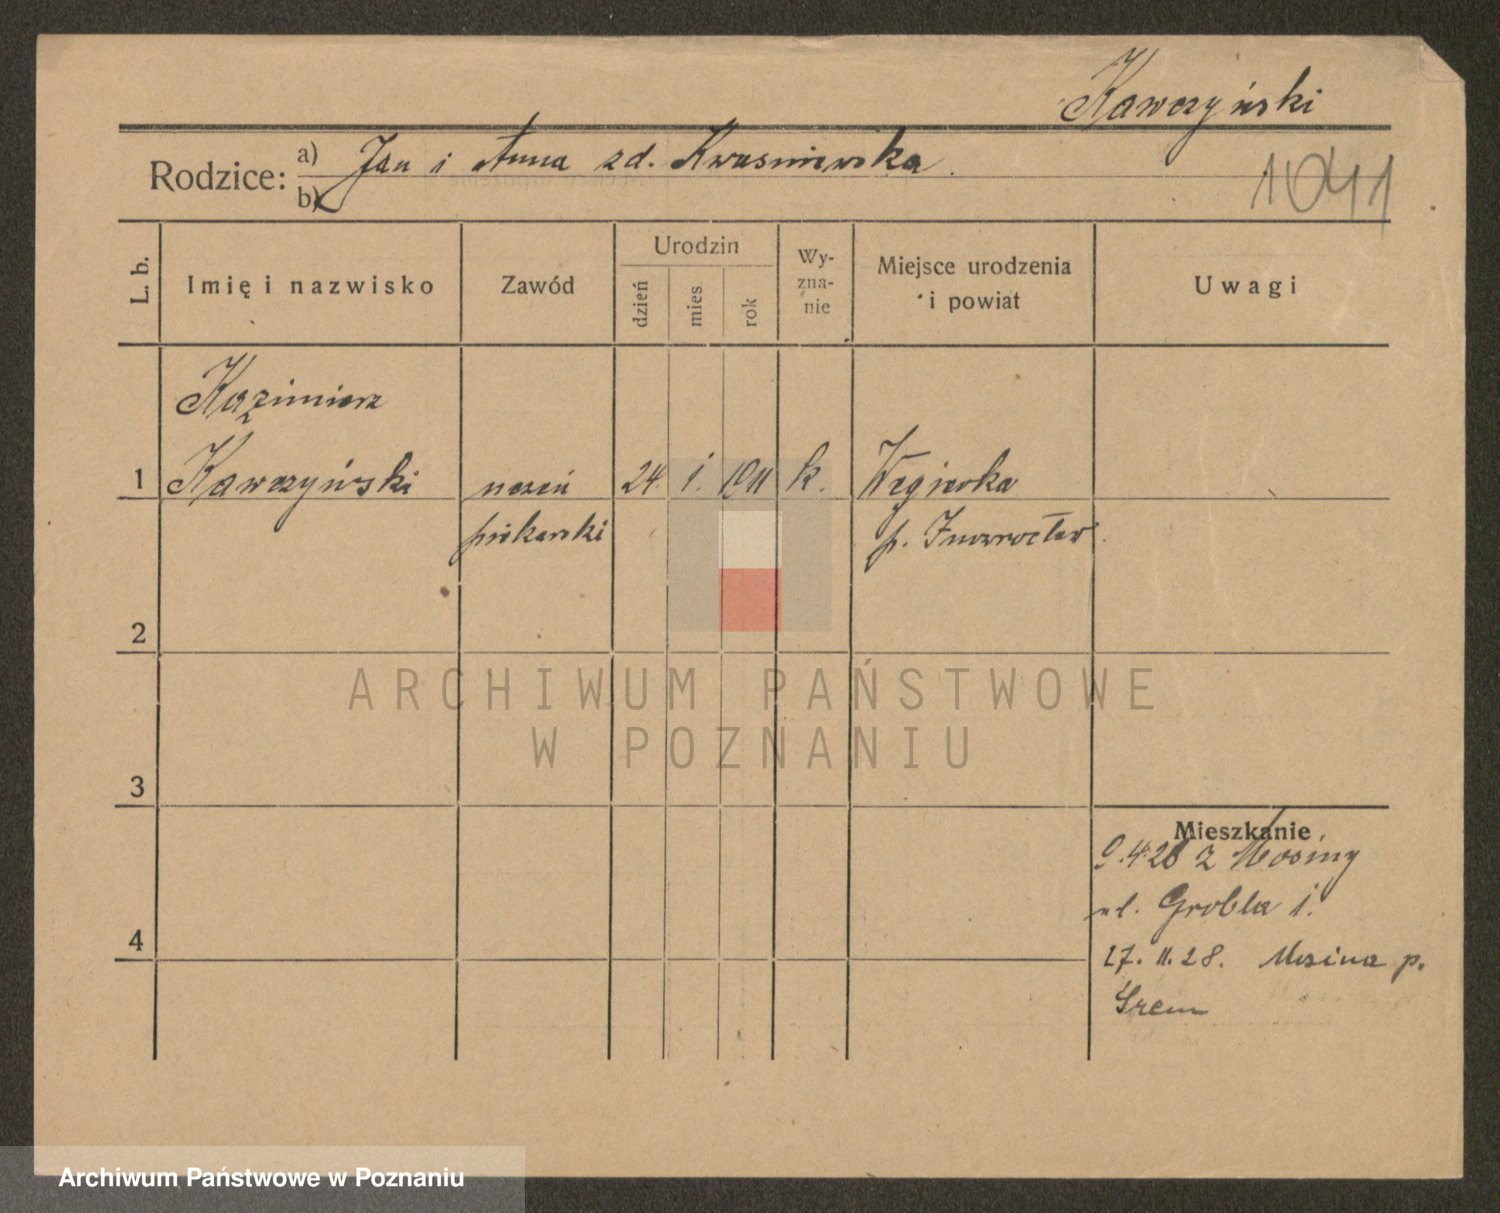 Kawczyński
Rodzice: a) Jan i Anna zd. Kwaśniewska.
b)
1041
L. b. Imię i nazwisko Zawód Urodzin dzień mies. rok Wy-zna-nie Miejsce urodzenia i powiat Uwagi
Kazimierz
1 Kawczyński uczeń 24. 1. 1911 k. Węgierka
piekarski p. Inowrocław
2
ARCHIWUM PAŃSTWOWE
W POZNANIU
3
Mieszkanie
9.4.28 z Mosiny
ul. Grobla 1.
4
27. 11. 28. Mosina p.
Śrem
Archiwum Państwowe w Poznaniu